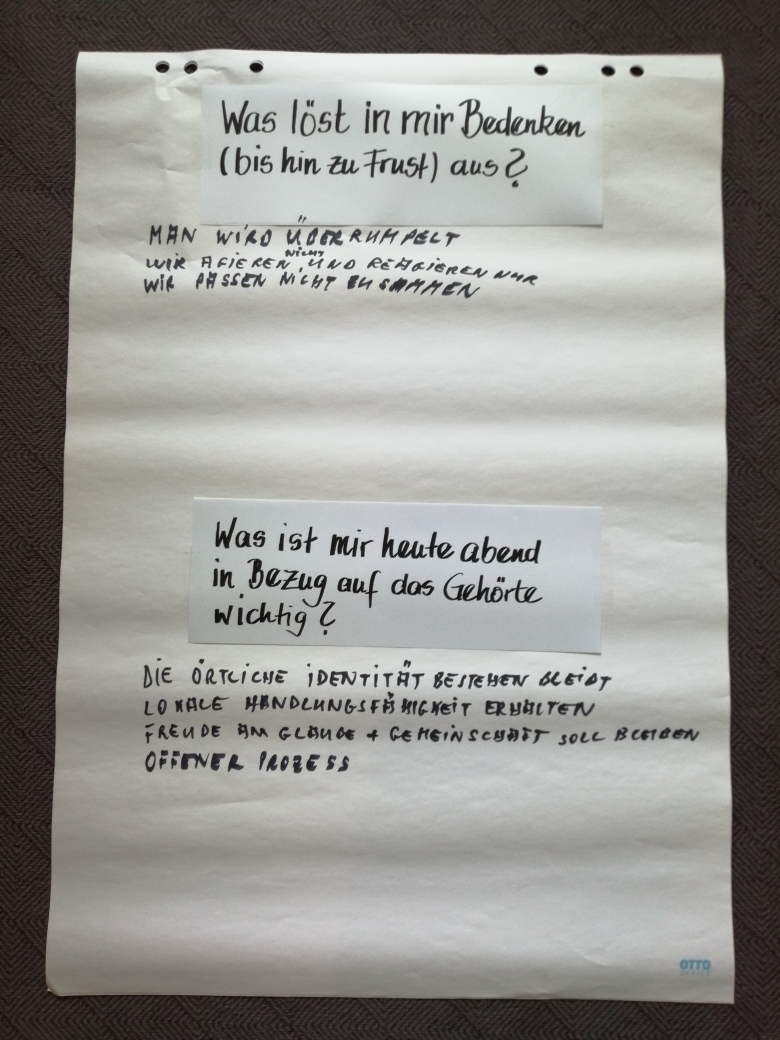 Was löst in mir Bedenken
(bis hin zu Frust) aus?
MAN WIRD ÜBERRUMPELT
WIR AGIEREN NICHT UND REAGIEREN NUR
WIR PASSEN NICHT ZUSAMMEN
Was ist mir heute abend
in Bezug auf das Gehörte
wichtig?
DIE ÖRTLICHE IDENTITÄT BESTEHEN BLEIBT
LOKALE HANDLUNGSFÄHIGKEIT ERHALTEN
FREUDE AM GLAUBE + GEMEINSCHAFT SOLL BLEIBEN
OFFENER PROZESS
OTTO
OFFICE